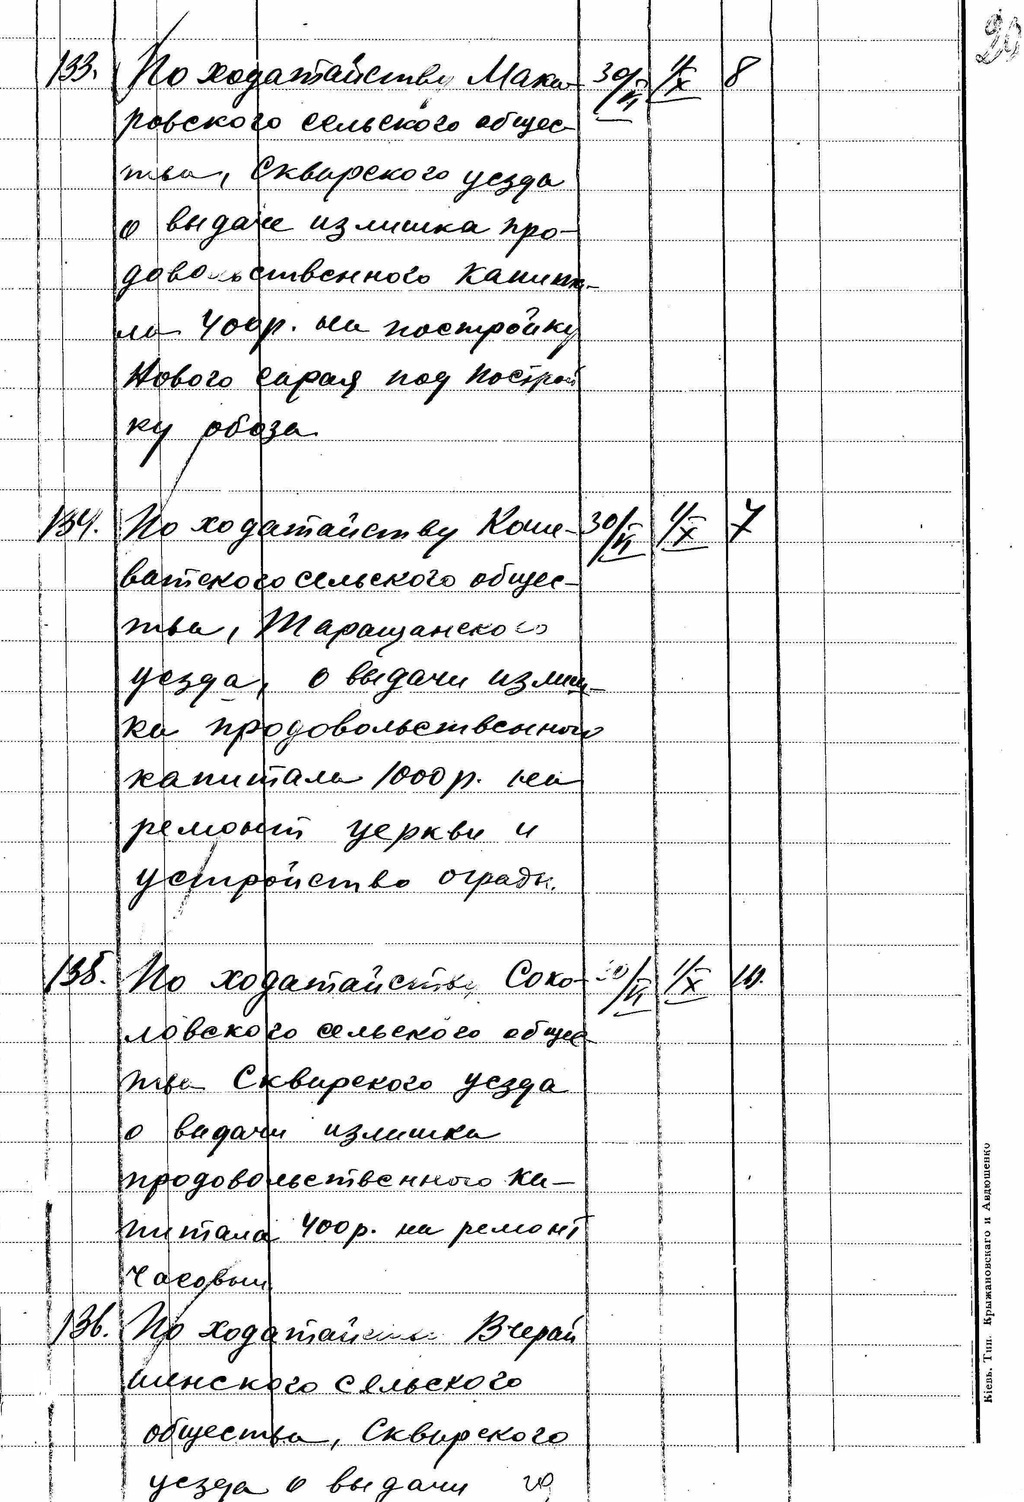 20
133. По ходатайству Мака- 30/VI 4/X 8
ровского сельского общес-
тва, Сквирского уезда
о выдаче излишка про-
довольственного капита-
ла 400р. на постройку
нового сарая под построй
ку обоза
134. По ходатайству Коше- 30/VI 4/X 7
ватского сельского общес-
тва, Таращанского
уезда, о выдачи излиш-
ка продовольственного
капитала 1000р. на
ремонт церкви и
устройство ограды.
135. По ходатайству Соко- 30/VI 4/X 10.
ловского сельского общес
тва Сквирского уезда
о выдачи излишка
продовольственного ка-
питала 400р. на ремонт
часовни
136. По ходатайству Вчерай
шенского сельского
общества, Сквирского
уезда о выдачи
Кіевъ. Тип. Крыжановскаго и Авдюшенко